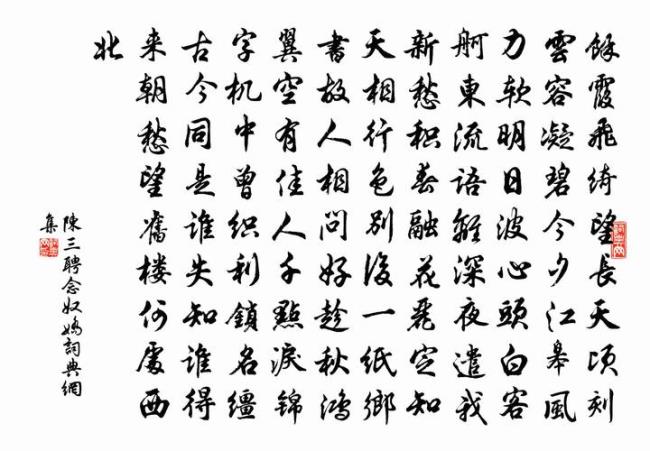 馀霞飛绮望長天顷刻
雲容凝碧今夕江皋風
力软明日波心頭白客
舸東流語離深夜遣我
新愁积春融花麗定知
天相行色别後一纸鄉
書故人相問好趁秋鸿
翼空有佳人千點淚锦
字机中曾织利鎖名繮
古今同是谁失知谁得
来朝愁望舊楼何處西
北
陳三聘念奴嬌詞典網
集